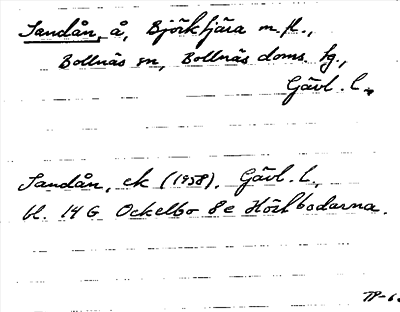 Sandån, å, Björktjära m.fl.,
Bollnäs sn, Bollnäs doms. tg.,
Gävl. l.
Sandån, ek (1958). Gävl. l.,
bl. 14 G Ockelbo 8e Hörbodarna.
TP-6